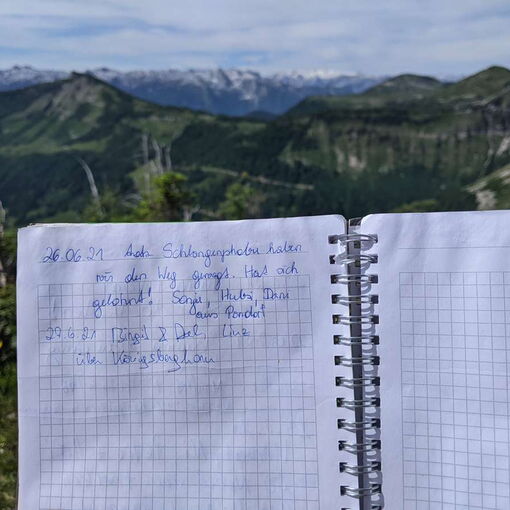 26.06.21 trotz Schlangenphobie haben
wir den Weg gewagt. Hat sich
gelohnt! Sonja, Hubsi, Dani
aus Pondorf
27.6.21 Birgit & Linz
über Königsberghorn